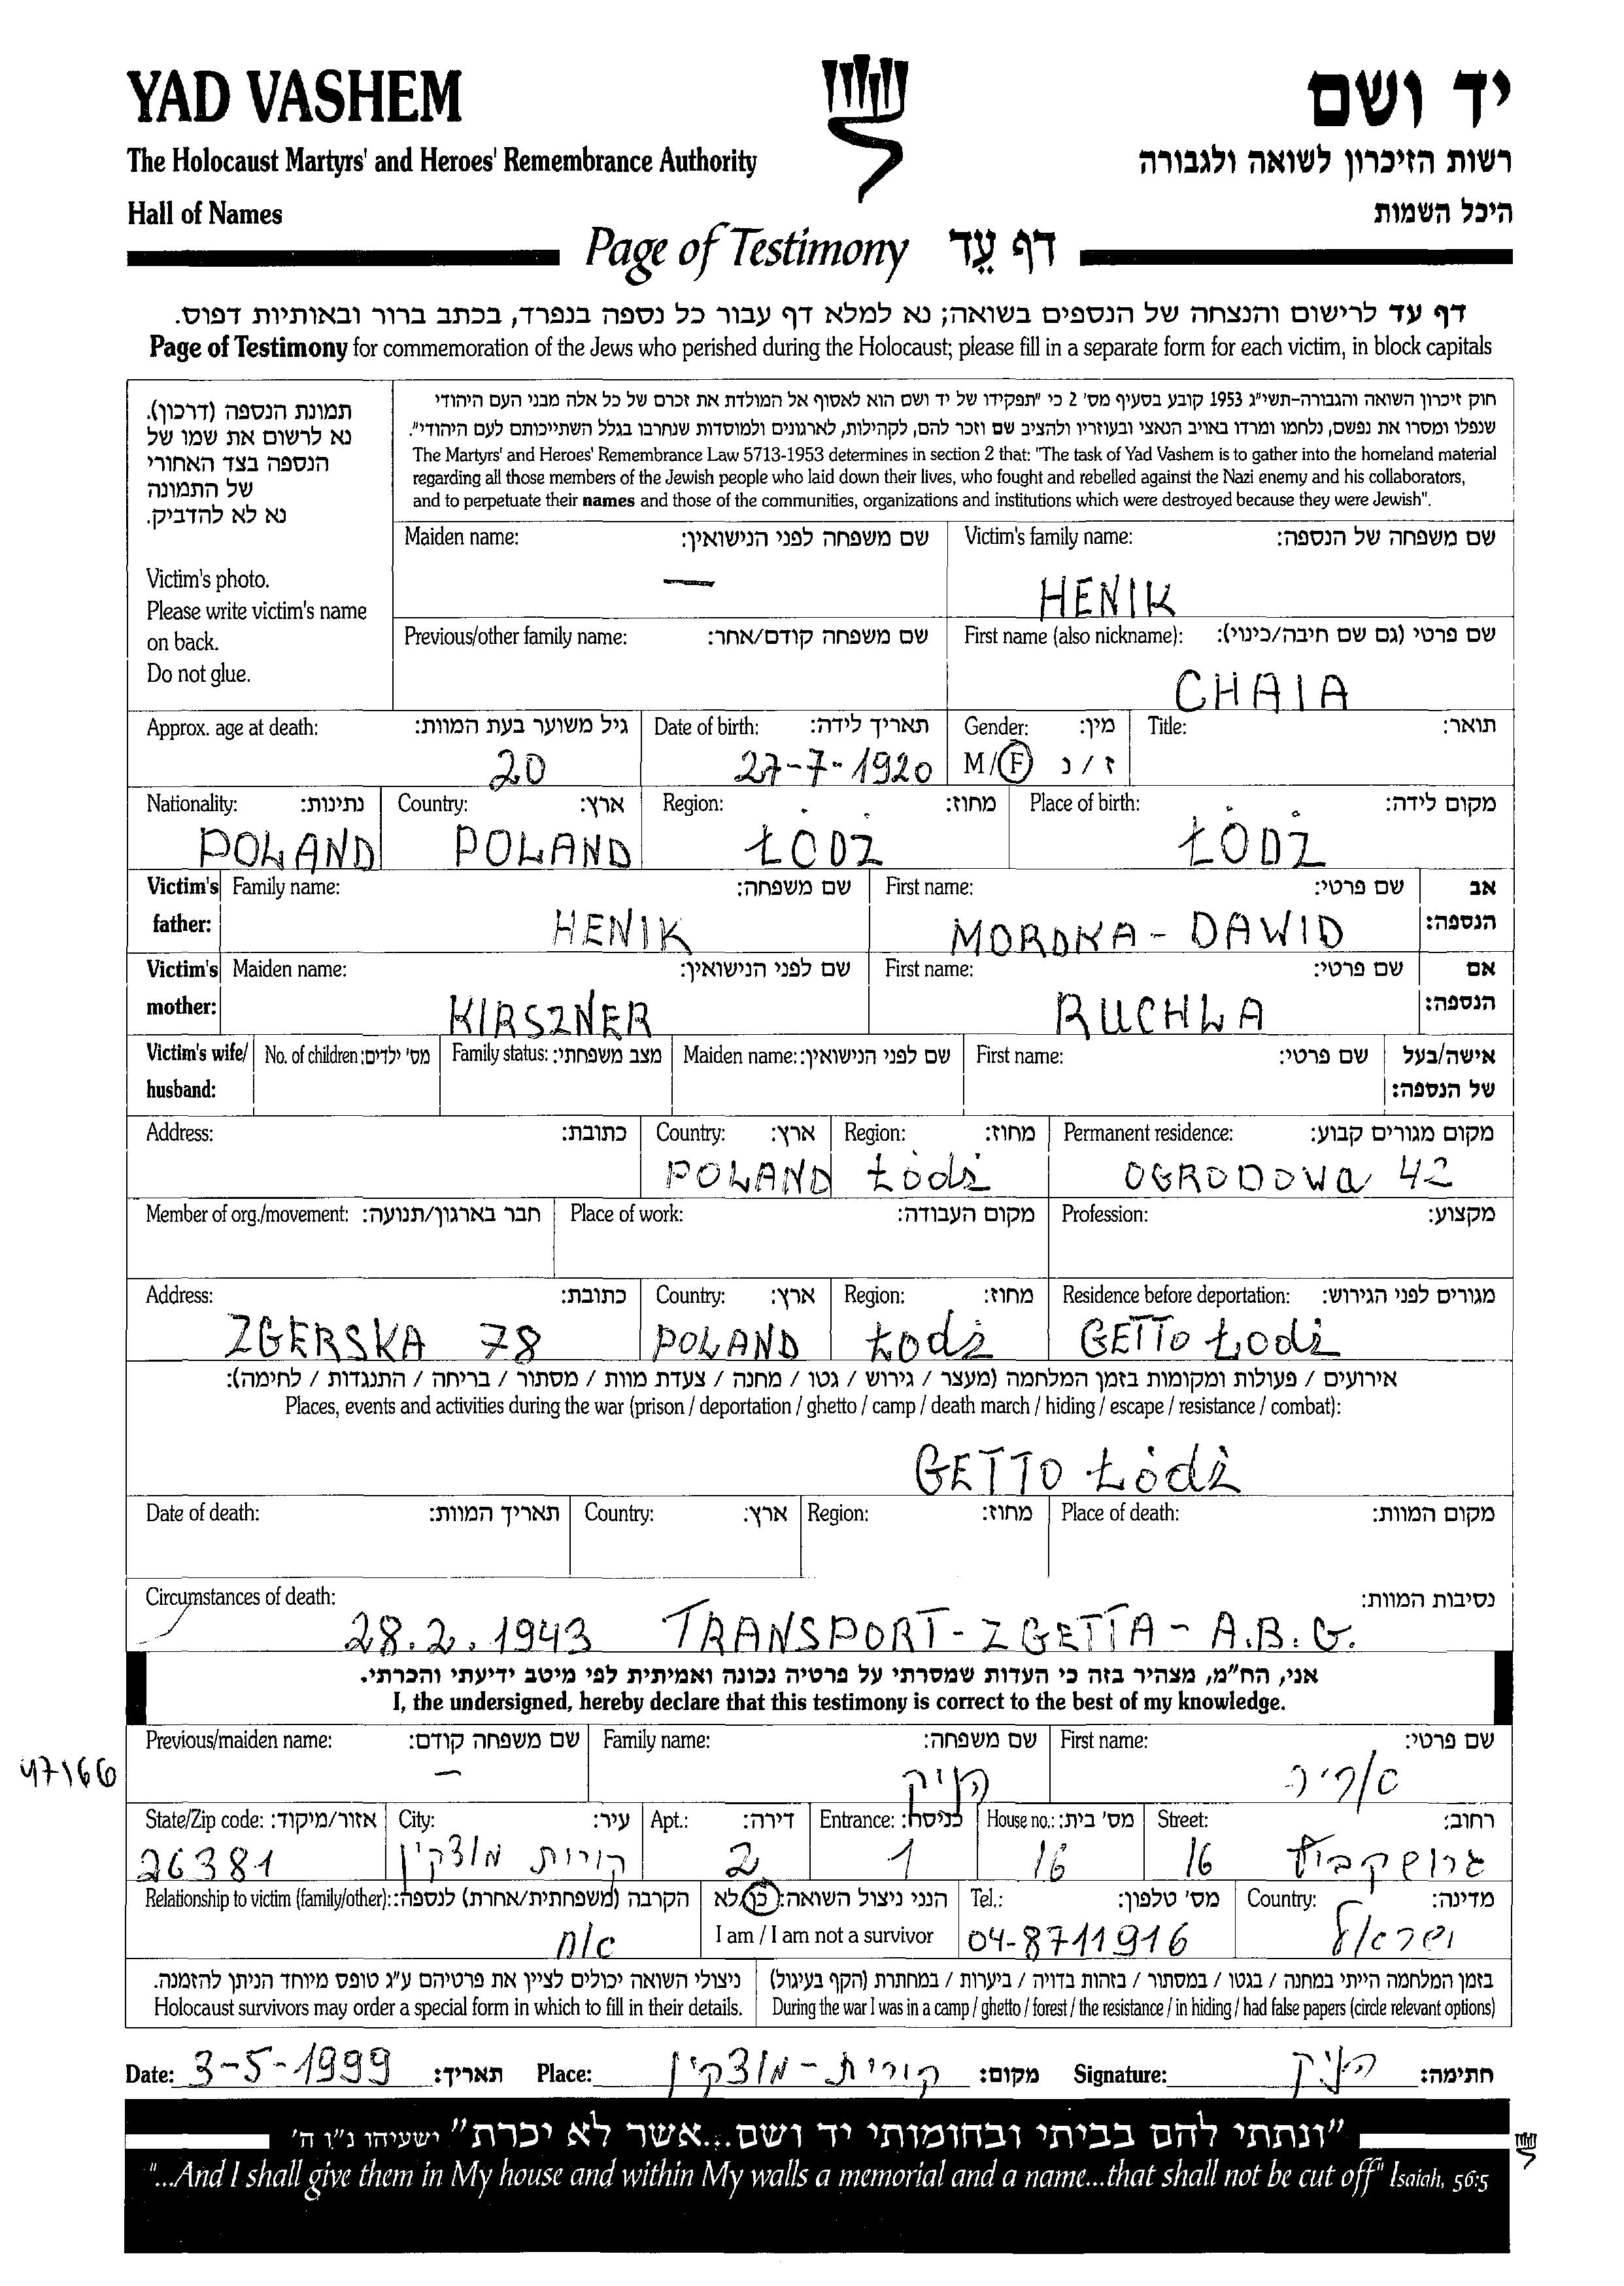 YAD VASHEM
יד ושם
The Holocaust Martyrs' and Heroes' Remembrance Authority
רשות הזיכרון לשואה ולגבורה
Hall of Names
היכל השמות
Page of Testimony דף עֵד
דף עד לרישום והנצחה של הנספים בשואה; נא למלא דף עבור כל נספה בנפרד, בכתב ברור ובאותיות דפוס.
Page of Testimony for commemoration of the Jews who perished during the Holocaust; please fill in a separate form for each victim, in block capitals
תמונת הנספה (דרכון).
נא לרשום את שמו של
הנספה בצד האחורי
של התמונה
נא לא להדביק.
Victim's photo.
Please write victim's name
on back.
Do not glue.
חוק זיכרון השואה והגבורה-תשי"ג 1953 קובע בסעיף מס' 2 כי "תפקידו של יד ושם הוא לאסוף אל המולדת את זכרם של כל אלה מבני העם היהודי
שנפלו ומסרו את נפשם, נלחמו ומרדו באויב הנאצי ובעוזריו ולהציב שם וזכר להם, לקהילות, לארגונים ולמוסדות שנחרבו בגלל השתייכותם לעם היהודי".
The Martyrs' and Heroes' Remembrance Law 5713-1953 determines in section 2 that: "The task of Yad Vashem is to gather into the homeland material
regarding all those members of the Jewish people who laid down their lives, who fought and rebelled against the Nazi enemy and his collaborators,
and to perpetuate their names and those of the communities, organizations and institutions which were destroyed because they were Jewish".
Maiden name: שם משפחה לפני הנישואין: Victim's family name: שם משפחה של הנספה:
— HENIK
Previous/other family name: שם משפחה קודם/אחר: First name (also nickname): שם פרטי (גם שם חיבה/כינוי):
CHAIA
Approx. age at death: גיל משוער בעת המוות: Date of birth: תאריך לידה: Gender: מין: Title: תואר:
20 27-7-1920 M/F ז/נ
Nationality: נתינות: Country: ארץ: Region: מחוז: Place of birth: מקום לידה:
POLAND POLAND ŁODŻ ŁODŻ
Victim's father: Family name: שם משפחה: First name: שם פרטי: אב הנספה:
HENIK MORDKA - DAWID
Victim's mother: Maiden name: שם לפני הנישואין: First name: שם פרטי: אם הנספה:
KIRSZNER RUCHLA
Victim's wife/ husband: No. of children: מס' ילדים: Family status: מצב משפחתי: Maiden name: שם לפני הנישואין: First name: שם פרטי: אישה/בעל של הנספה:
Address: כתובת: Country: ארץ: Region: מחוז: Permanent residence: מקום מגורים קבוע:
POLAND Łódż OGRODOWA 42
Member of org./movement: חבר בארגון/תנועה: Place of work: מקום העבודה: Profession: מקצוע:
Address: כתובת: Country: ארץ: Region: מחוז: Residence before deportation: מגורים לפני הגירוש:
ZGERSKA 78 POLAND Łodż GETTO Łodż
אירועים / פעולות ומקומות בזמן המלחמה (מעצר / גירוש / גטו / מחנה / צעדת מוות / מסתור / בריחה / התנגדות / לחימה):
Places, events and activities during the war (prison / deportation / ghetto / camp / death march / hiding / escape / resistance / combat):
GETTO Łódż
Date of death: תאריך המוות: Country: ארץ: Region: מחוז: Place of death: מקום המוות:
Circumstances of death: נסיבות המוות:
28.2.1943 TRANSPORT - Z GETTA - A.B.G.
אני, הח"מ, מצהיר בזה כי העדות שמסרתי על פרטיה נכונה ואמיתית לפי מיטב ידיעתי והכרתי.
I, the undersigned, hereby declare that this testimony is correct to the best of my knowledge.
Previous/maiden name: שם משפחה קודם: Family name: שם משפחה: First name: שם פרטי:
47166 — הניק
State/Zip code: אזור/מיקוד: City: עיר: Apt.: דירה: Entrance: כניסה: House no.: מס' בית: Street: רחוב:
26381 קורית מוצקין 2 1 16 16
Relationship to victim (family/other): הקרבה (משפחתית/אחרת) לנספה: הנני ניצול השואה: כן/לא Tel.: מס' טלפון: Country: מדינה:
אח I am / I am not a survivor 04-8711916 ישראל
ניצולי השואה יכולים לציין את פרטיהם ע"ג טופס מיוחד הניתן להזמנה. בזמן המלחמה הייתי במחנה / בגטו / במסתור / בזהות בדויה / ביערות / במחתרת (הקף בעיגול)
Holocaust survivors may order a special form in which to fill in their details. During the war I was in a camp / ghetto / forest / the resistance / in hiding / had false papers (circle relevant options)
Date: 3-5-1999 תאריך: Place: קורית-מוצקין מקום: Signature: הניק חתימה:
"ונתתי להם בביתי ובחומותי יד ושם...אשר לא יכרת" ישעיהו נ"ו ה'
"...And I shall give them in My house and within My walls a memorial and a name...that shall not be cut off" Isaiah, 56:5